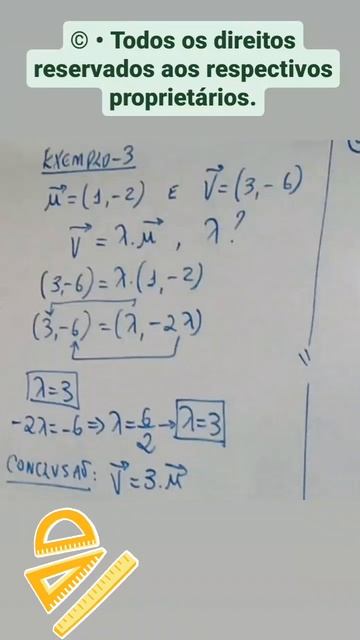 © • Todos os direitos
reservados aos respectivos
proprietários.
EXEMPLO-3
μ⃗=(1,-2) E V⃗=(3,-6)
V⃗=λ.μ⃗, λ?
(3,-6)=λ.(1,-2)
(3,-6)=(λ,-2λ)
λ=3
-2λ=-6⇒λ=6/2→λ=3
CONCLUSÃO: V⃗=3.μ⃗